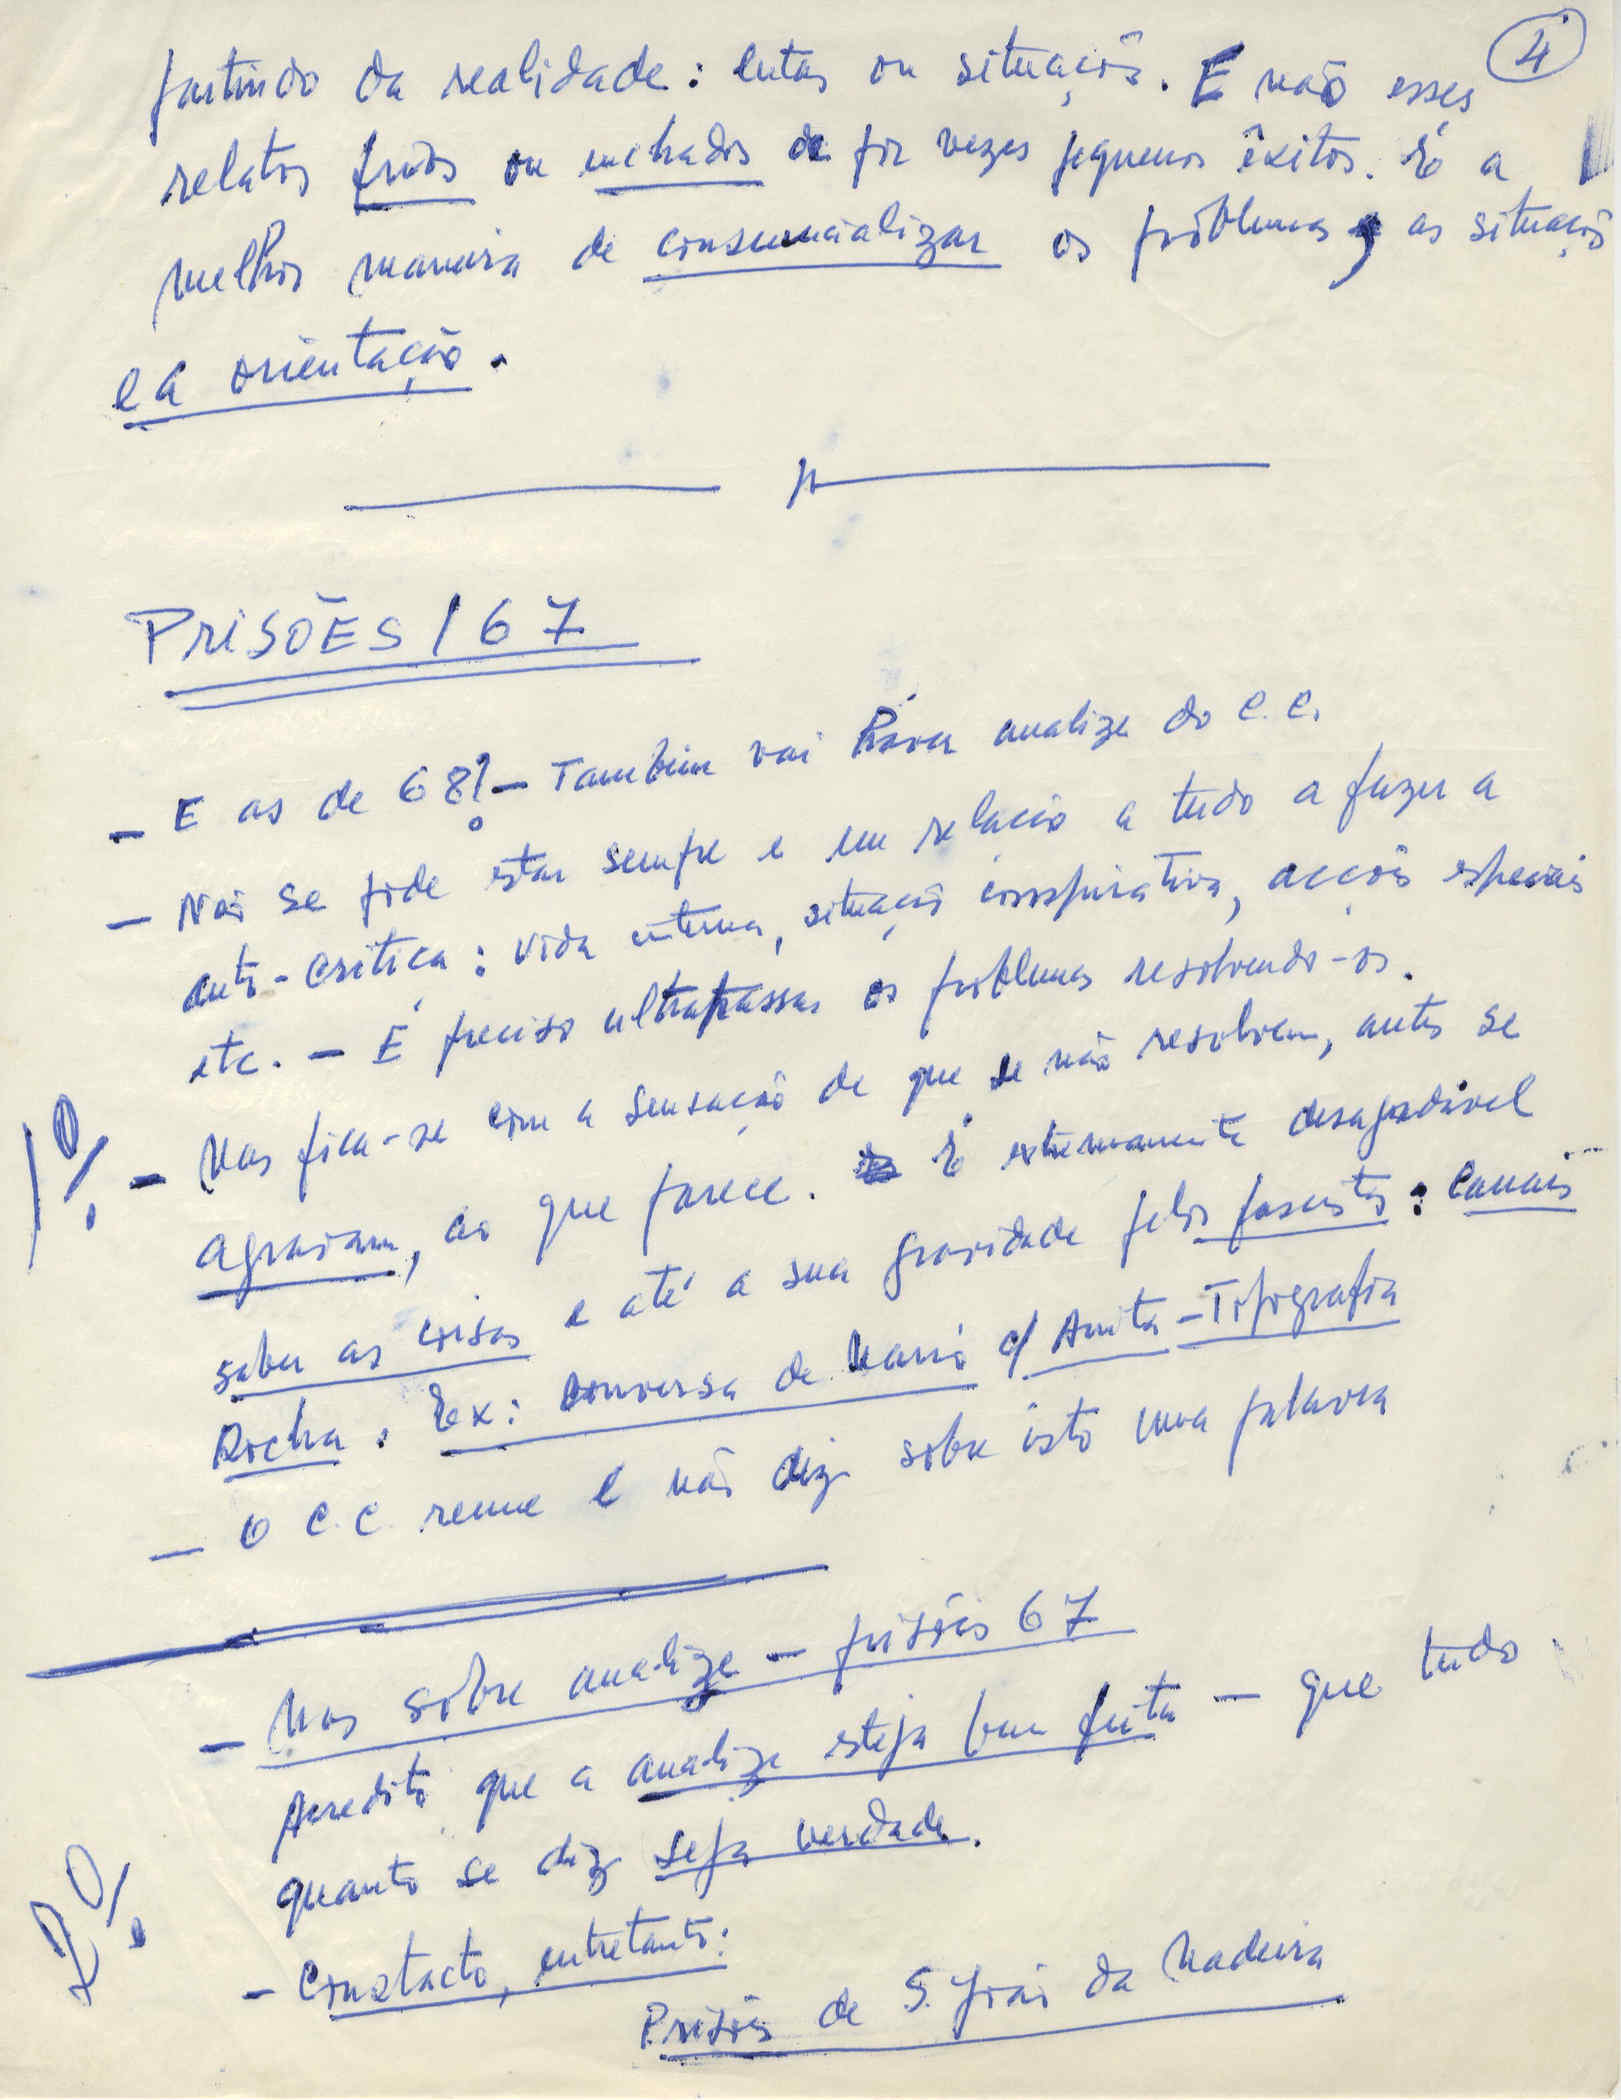 4
partindo da realidade: lutas ou situações. E não esses
relatos frios ou inchados de por vezes pequenos êxitos. É a
melhor maneira de consciencializar os problemas, as situações
e a orientação.
PRISÕES / 67
- E as de 68? - Também vai haver analize do C.C.
- Não se pode estar sempre e em relação a tudo a fazer a
auto-critica: vida interna, situação conspirativa, acções especiais
etc. - É preciso ultrapassar os problemas resolvendo-os.
1º/. - Mas fica-se com a sensação de que se não resolvem, antes se
agravam, ao que parece. É extremamente desagradável
saber as coisas e até a sua gravidade pelos fascistas: canais
Rocha. Ex: conversa de Mário c/ Anita - Tipografia
- O C.C. reune e não diz sobre isto uma palavra
- Mas sobre analize - prisões 67
Acredito que a analize esteja bem feita - que tudo
quanto se diz seja verdade.
2º/. - Constacto, entretanto:
Prisões de S. João da Madeira